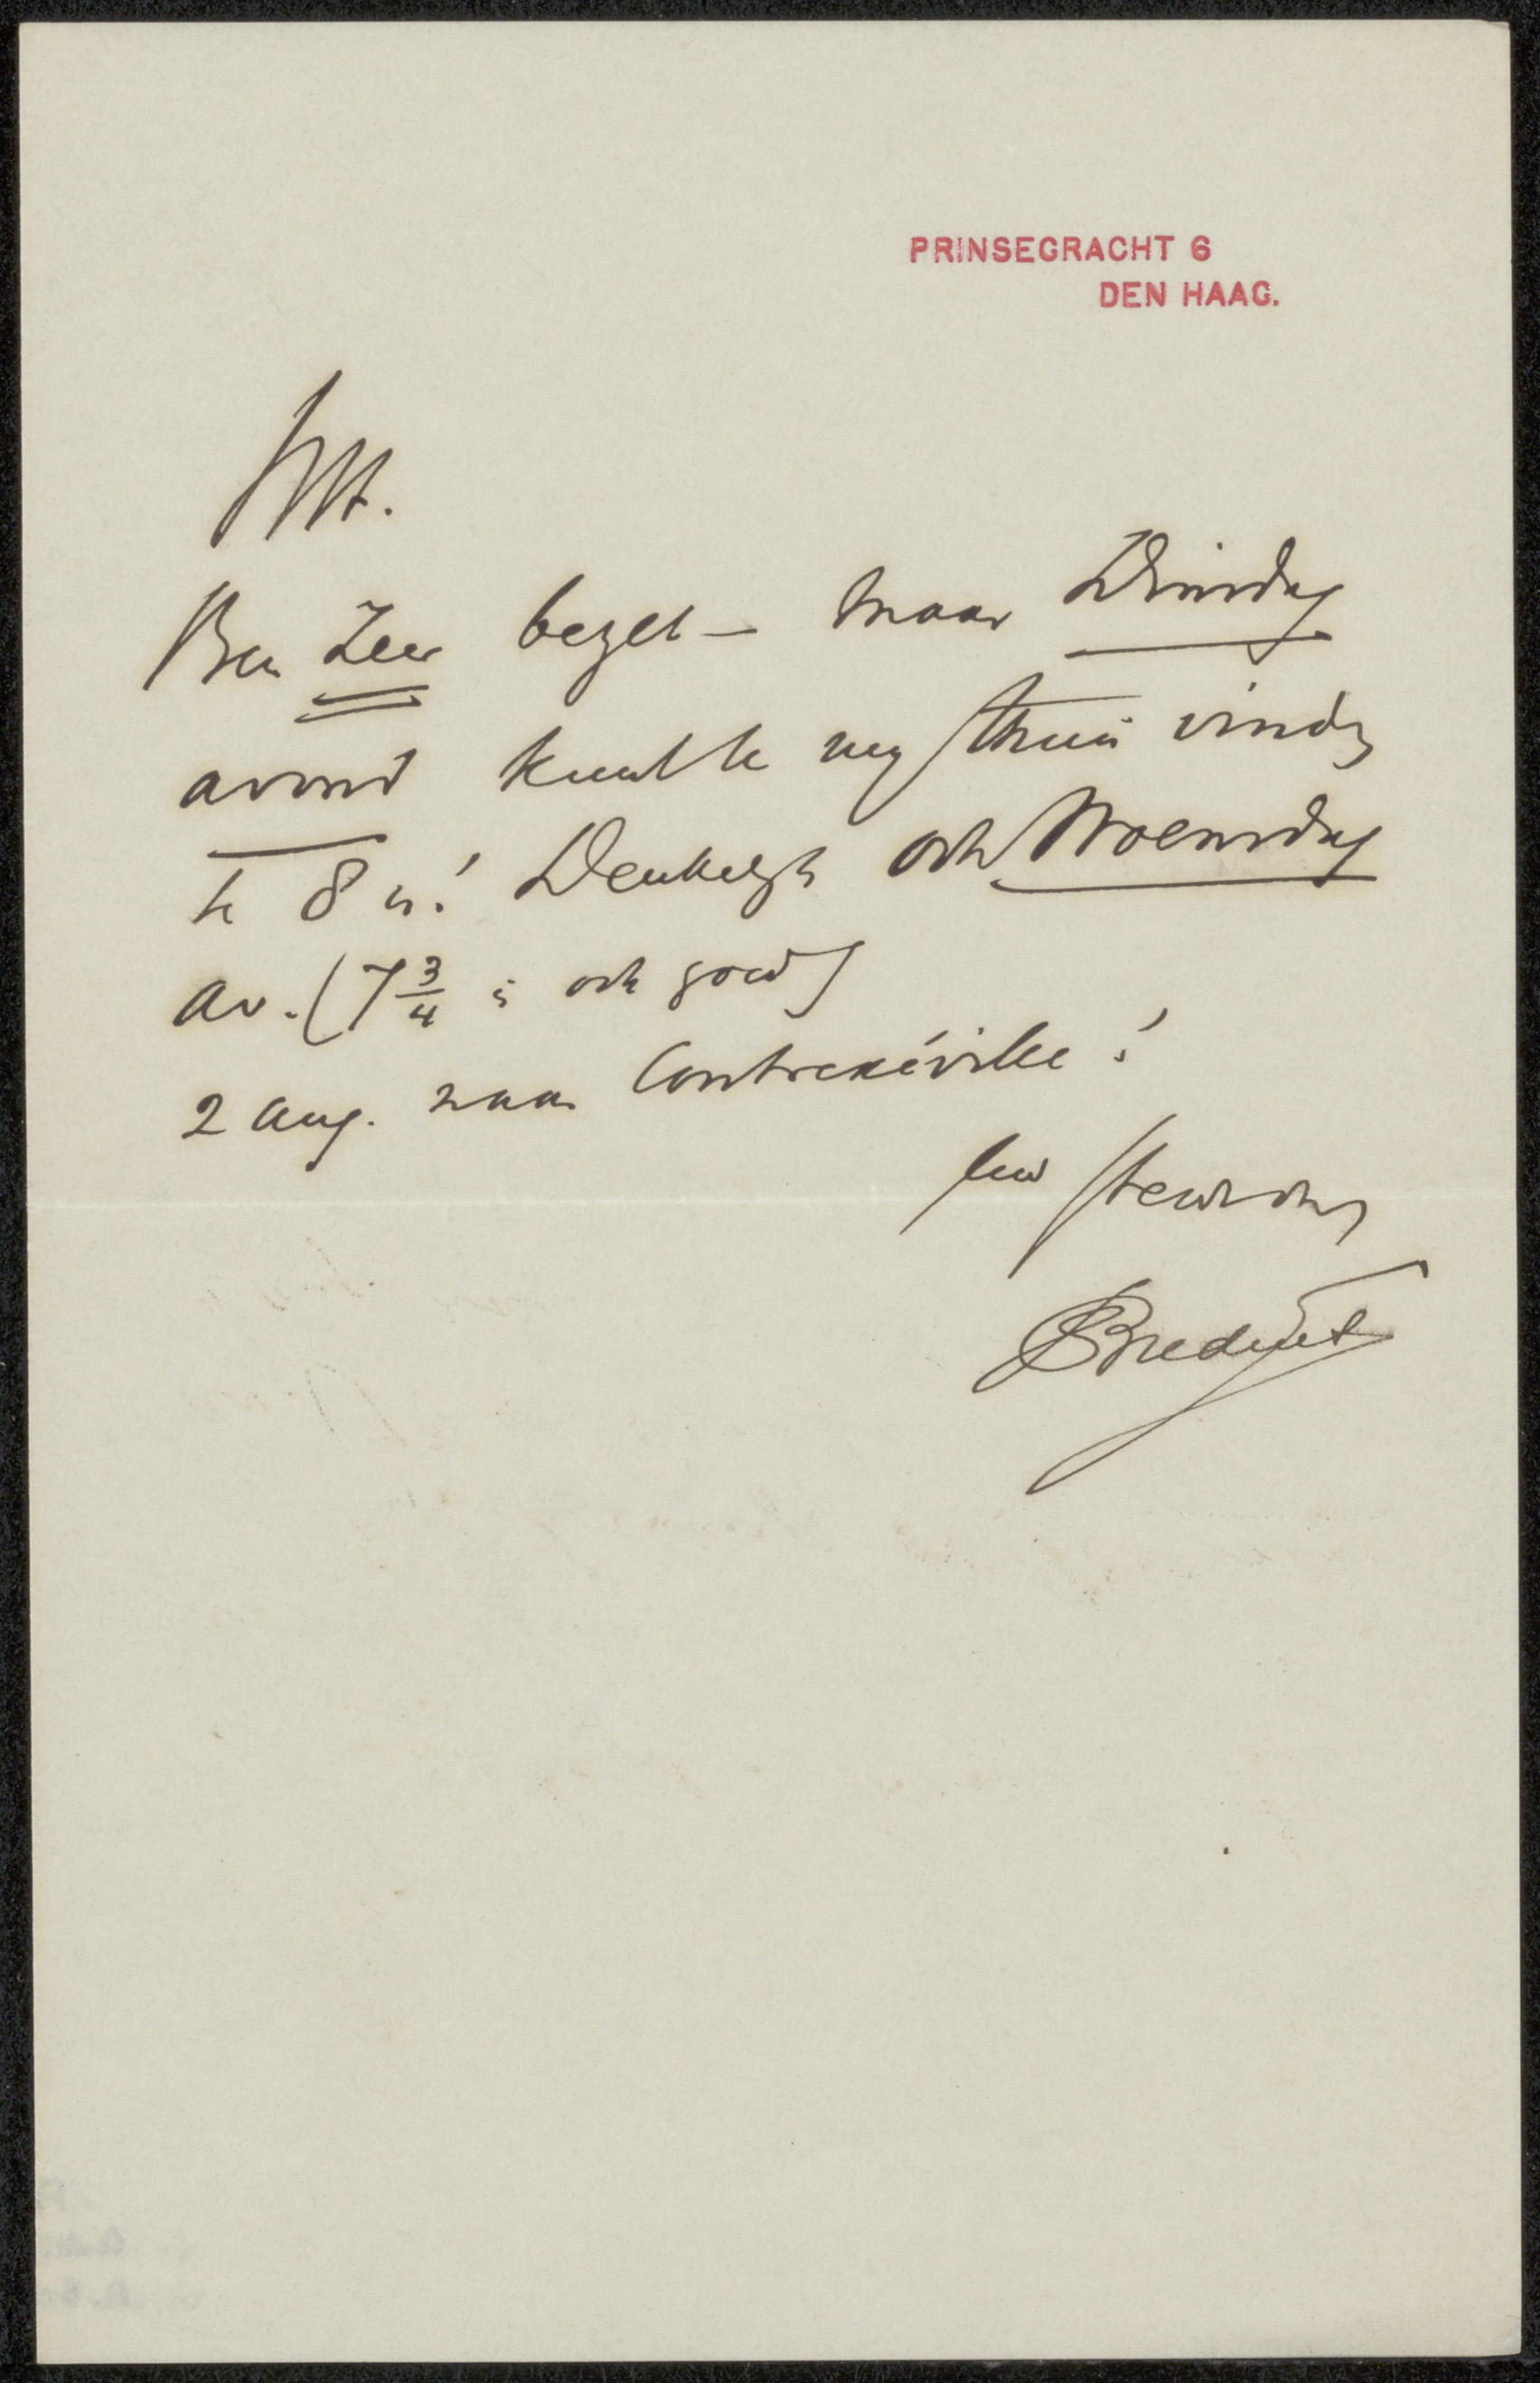 PRINSEGRACHT 6
DEN HAAG.
Ben Zeer bezet – maar Dinsdag
avond kunt U my thuis vinden
te 8 u! Denkelyk ook Woensdag
av. (7 3/4 is ook goed)
2 Aug. naar Contrexéville!
Uw
ABredius